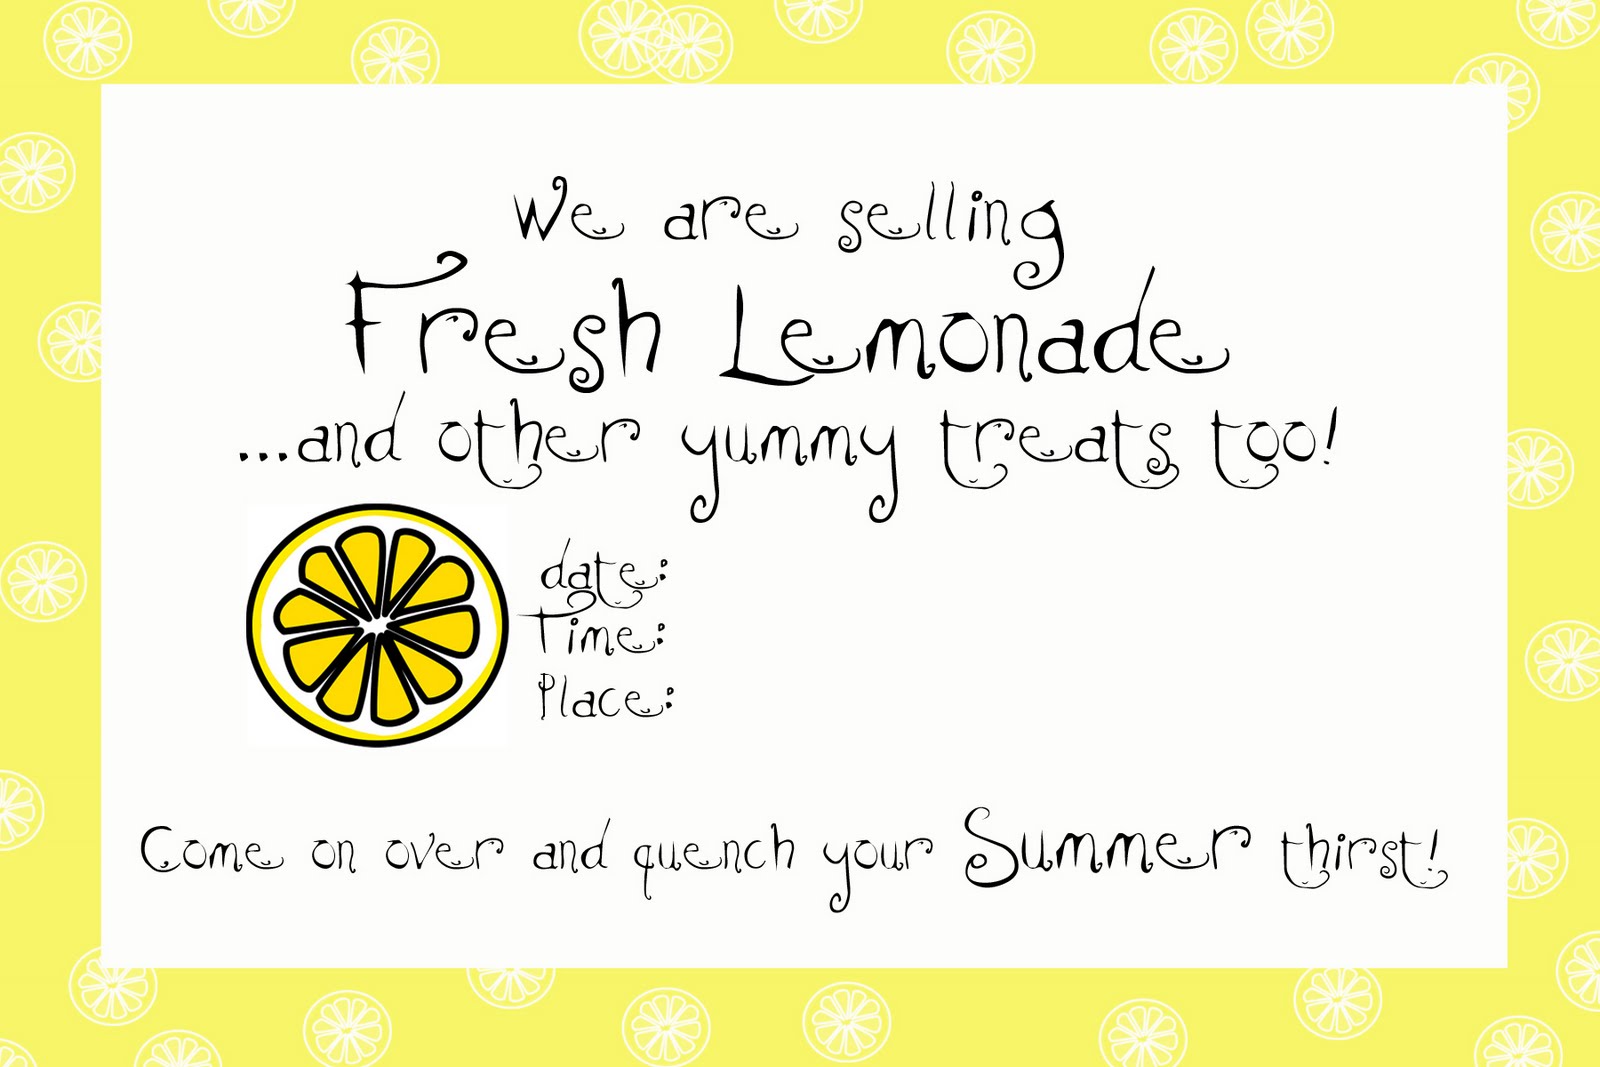 We are selling
Fresh Lemonade
...and other yummy treats too!
date:
Time:
Place:
Come on over and quench your Summer thirst!